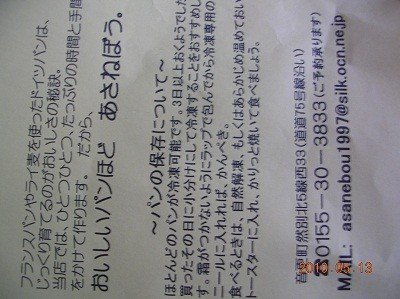 フランスパンやライ麦を使ったドイツパンは、
じっくり育てるのがおいしさの秘訣。
当店では、ひとつひとつ、たっぷりの時間と手間
をかけて作ります。 だから、
おいしいパンほど あさねぼう。
～パンの保存について～
ほとんどのパンが冷凍可能です。3日以上おくようでした
買ったその日に小分けにして冷凍することをおすすめし
す。霜がつかないようにラップで包んでから冷凍専用の
ニールに入れれば、かんぺき。
食べるときは、自然解凍、もしくはあらかじめ温めておい
トースターに入れ、かりっと焼いて食べましょう。
音更町然別北5線西33(道道75号線沿い)
☎0155-30-3833(ご予約承ります)
MAIL: asanebou1997@silk.ocn.ne.jp